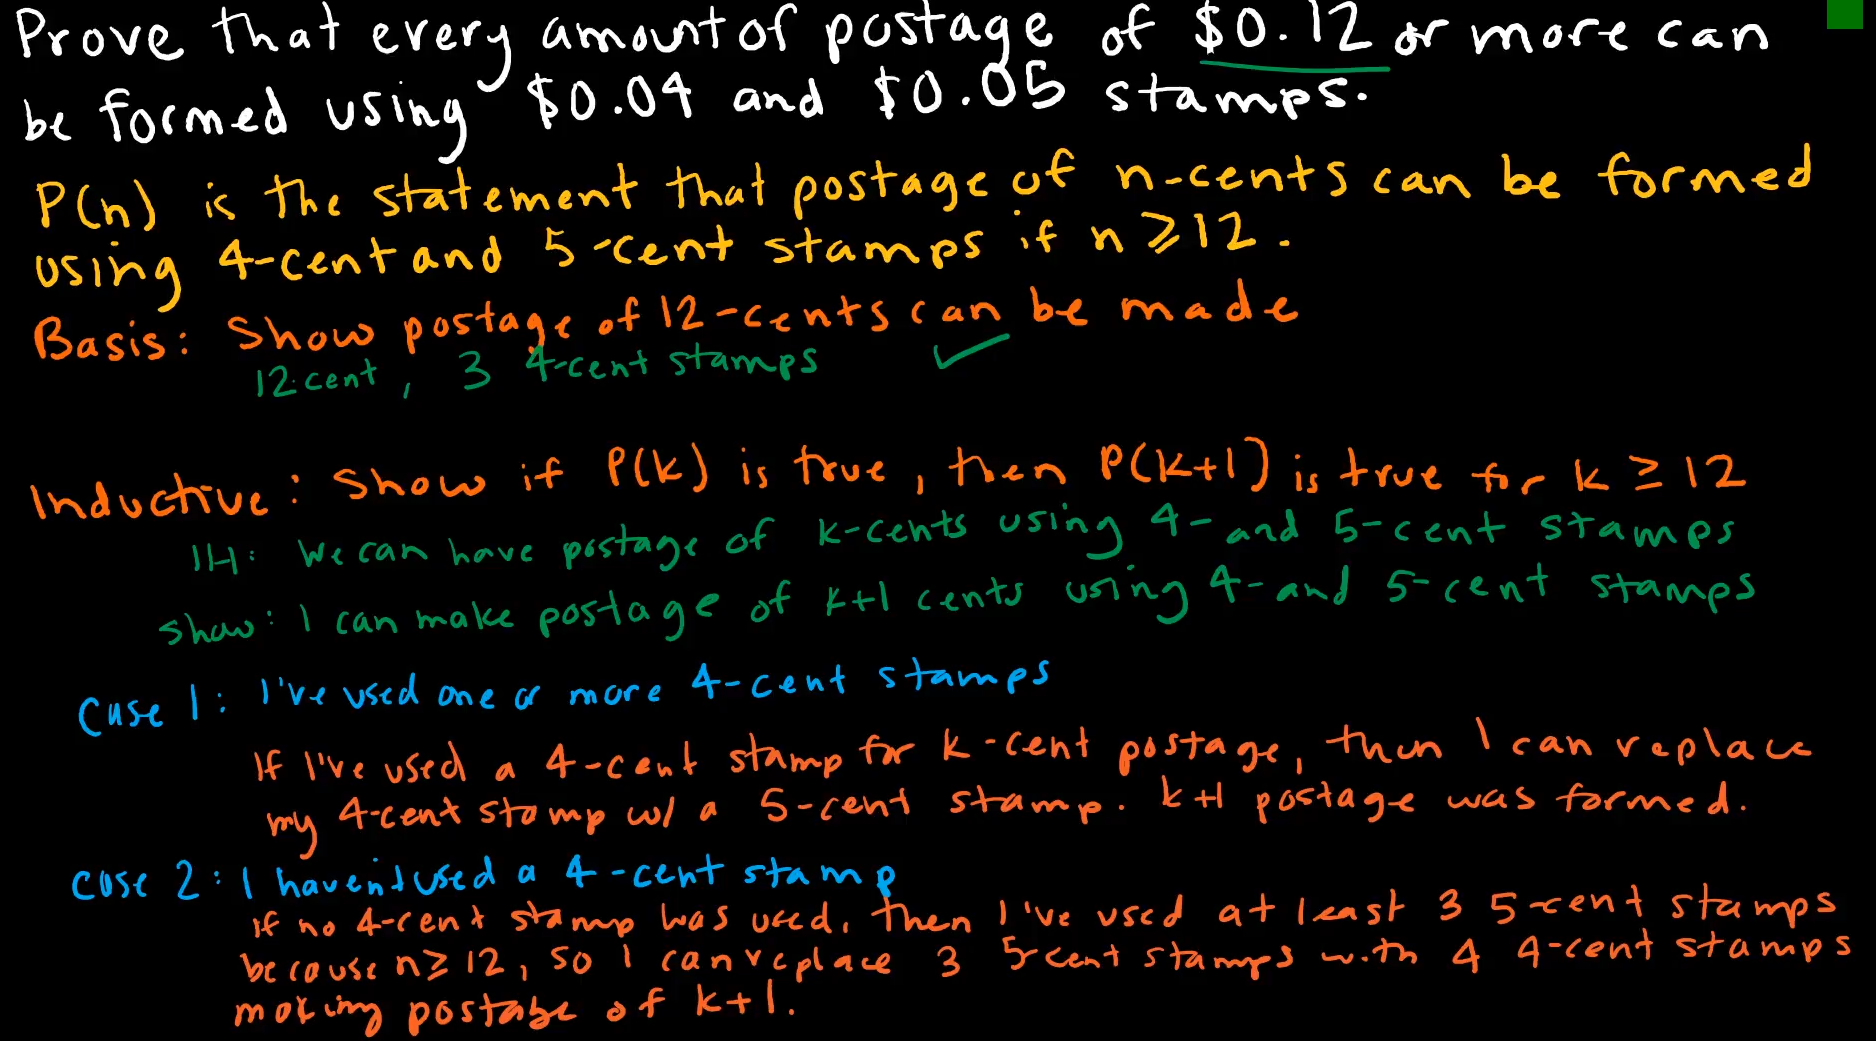 Prove that every amount of postage of $0.12 or more can
be formed using $0.04 and $0.05 stamps.
P(n) is the statement that postage of n-cents can be formed
using 4-cent and 5-cent stamps if n ≥ 12.
Basis: Show postage of 12-cents can be made
12-cent, 3 4-cent stamps ✓
Inductive: Show if P(k) is true, then P(k+1) is true for k ≥ 12
IH: We can have postage of k-cents using 4- and 5-cent stamps
show: I can make postage of k+1 cents using 4- and 5-cent stamps
Case 1: I've used one or more 4-cent stamps
If I've used a 4-cent stamp for k-cent postage, then I can replace
my 4-cent stamp w/ a 5-cent stamp. k+1 postage was formed.
Case 2: I haven't used a 4-cent stamp
If no 4-cent stamp was used, then I've used at least 3 5-cent stamps
because n ≥ 12, so I can replace 3 5-cent stamps with 4 4-cent stamps
making postage of k+1.